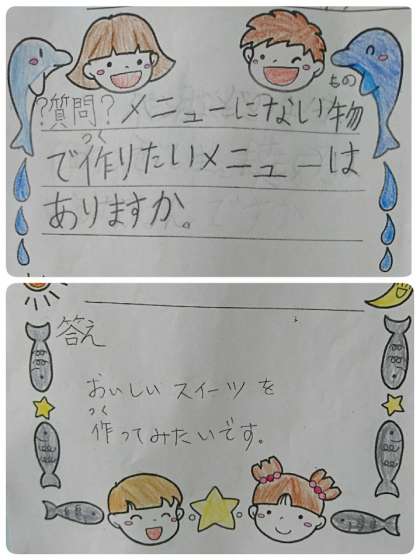 ?質問?メニューにない物
もの
で作りたいメニューは
つく
ありますか。
答え
おいしいスイーツを
つく
作ってみたいです。